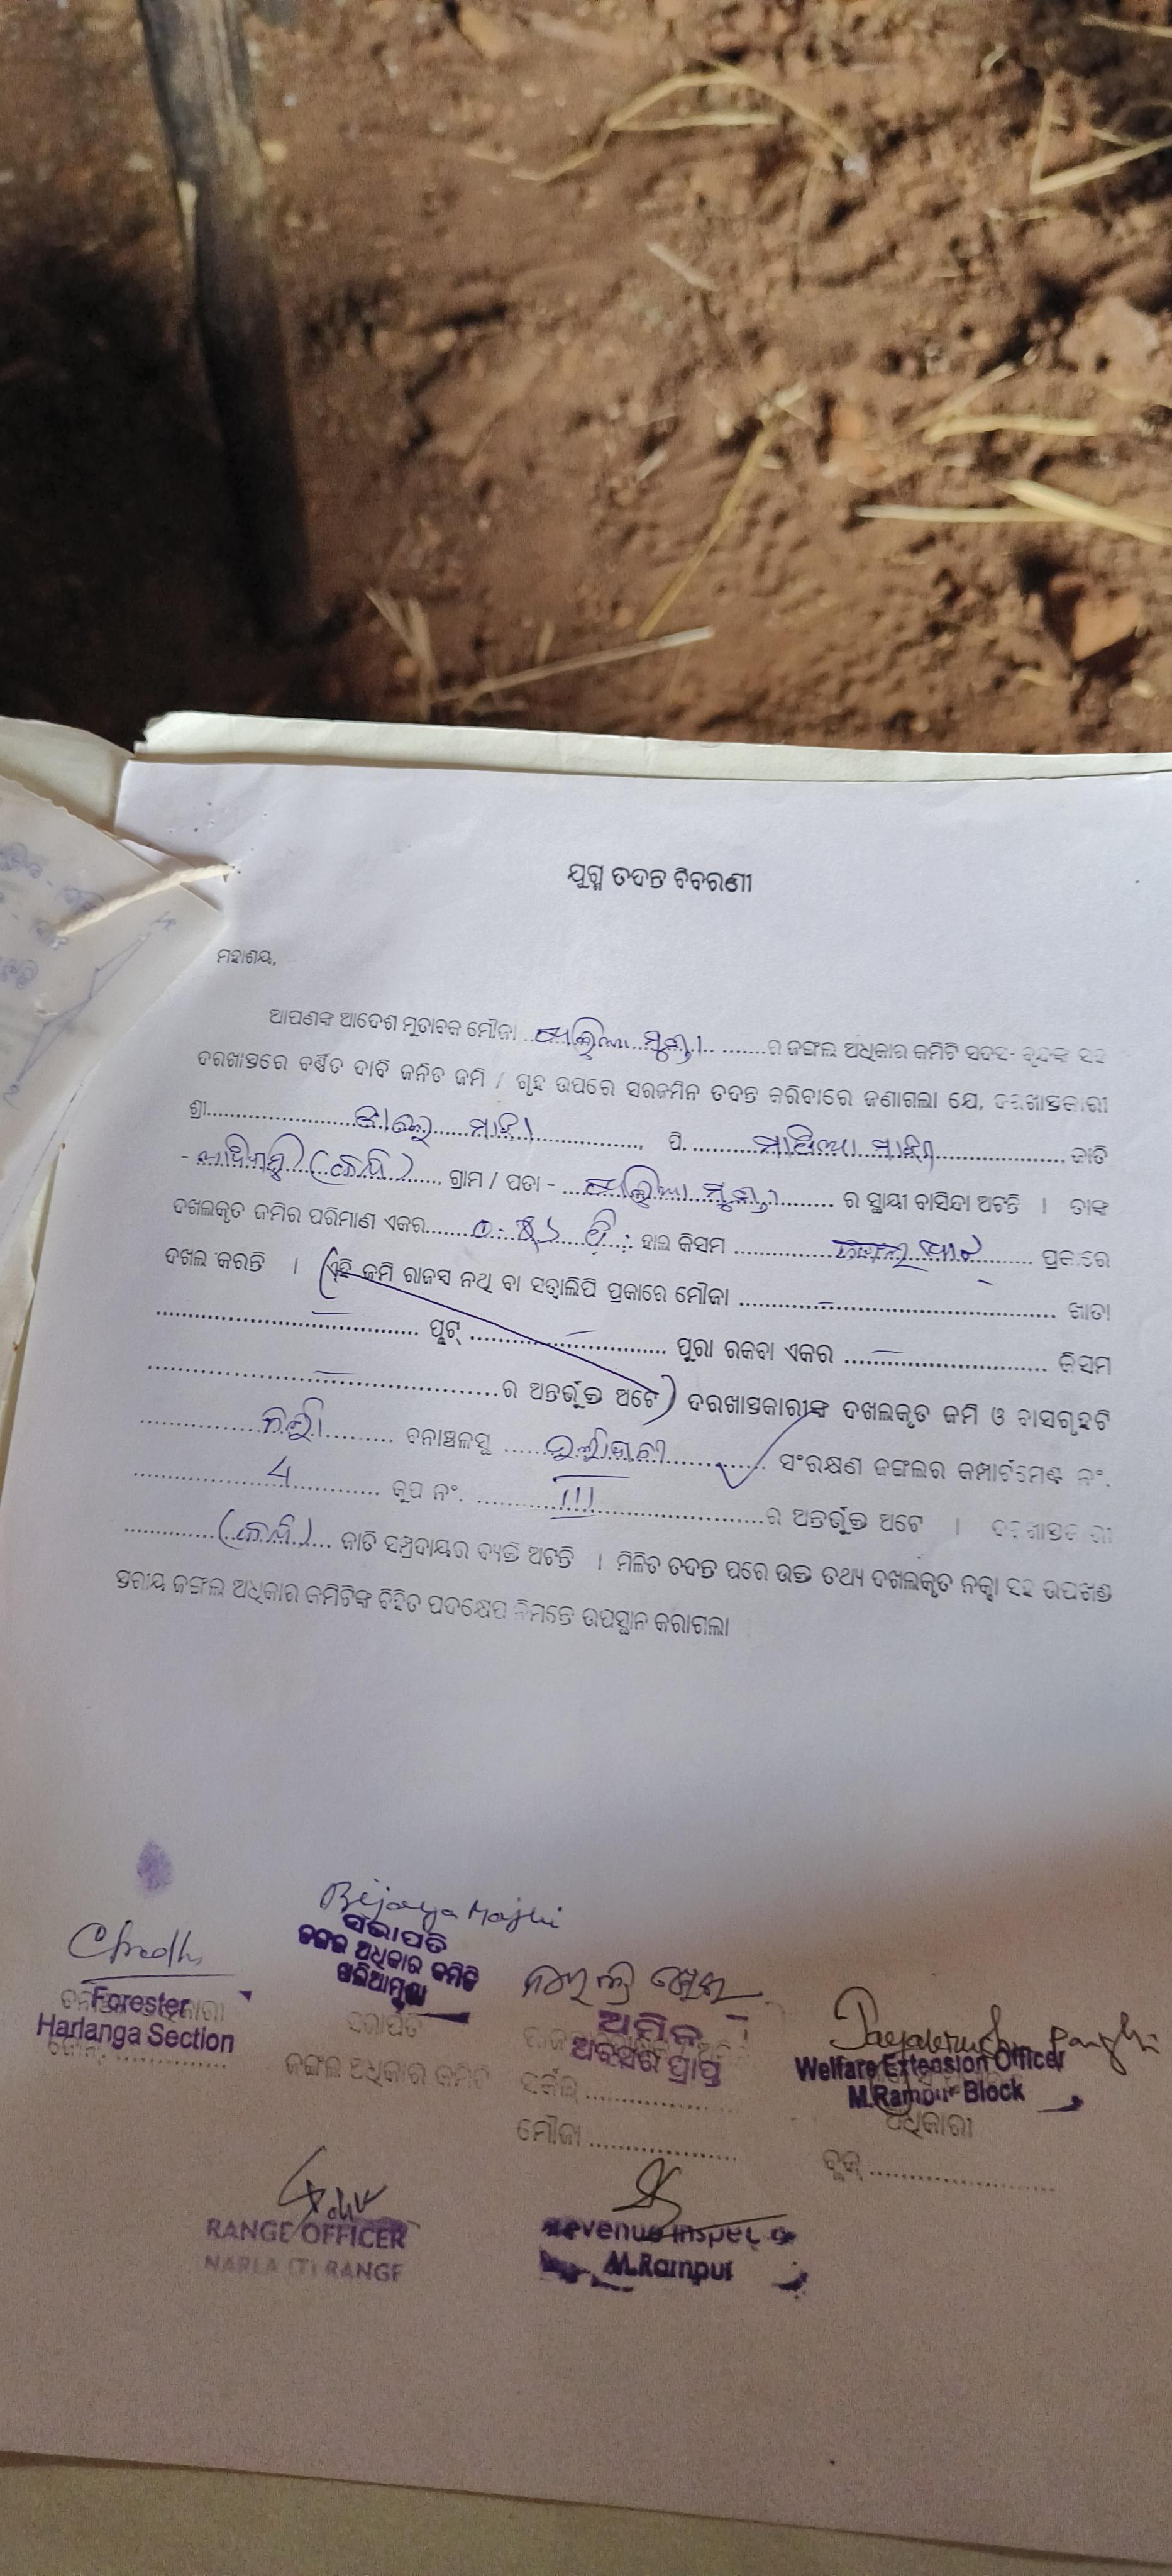 ଯୁଗ୍ମ ତଦନ୍ତ ବିବରଣୀ
ମହାଶୟ,
ଆପଣଙ୍କ ଆଦେଶ ମୁତାବକ ମୌଜା ........ ର ଜଙ୍ଗଲ ଅଧିକାର କମିଟି ସଦସ୍ୟ ବୃନ୍ଦଙ୍କ ସହ
ଦରଖାସ୍ତରେ ବର୍ଣ୍ଣିତ ଦାବି ଜନିତ ଜମି / ଗୃହ ଉପରେ ସରଜମିନ ତଦନ୍ତ କରିବାରେ ଜଣାଗଲା ଯେ, ଦରଖାସ୍ତକାରୀ
ଶ୍ରୀ........ ମାଝୀ ........, ପି. ........ ମାଝୀ ........, ଜାତି
- ........ (କୋନ୍ଧ) ........, ଗ୍ରାମ / ପଡା - ........ ର ସ୍ଥାୟୀ ବାସିନ୍ଦା ଅଟନ୍ତି । ତାଙ୍କ
ଦଖଲକୃତ ଜମିର ପରିମାଣ ଏକର........ ହାଲ କିସମ ........ ପ୍ରକାରେ
ଦଖଲ କରନ୍ତି । (ଏହି ଜମି ରାଜସ୍ୱ ନଥି ବା ସତ୍ୱାଲିପି ପ୍ରକାରେ ମୌଜା ........ ଖାତା
........ ପ୍ଲଟ୍ ........ ପୁରା ରକବା ଏକର ........ କିସମ
........ର ଅନ୍ତର୍ଭୁକ୍ତ ଅଟେ) ଦରଖାସ୍ତକାରୀଙ୍କ ଦଖଲକୃତ ଜମି ଓ ବାସଗୃହଟି
........ ବନାଞ୍ଚଳସ୍ଥ ........ ସଂରକ୍ଷଣ ଜଙ୍ଗଲର କମ୍ପାର୍ଟମେଣ୍ଟ ନଂ.
4 ........ କୁପ ନଂ. ........ III ........ର ଅନ୍ତର୍ଭୁକ୍ତ ଅଟେ । ଦରଖାସ୍ତକାରୀ
........(କୋନ୍ଧ)........ ଜାତି ସମ୍ପ୍ରଦାୟର ବ୍ୟକ୍ତି ଅଟନ୍ତି । ମିଳିତ ତଦନ୍ତ ପରେ ଉକ୍ତ ତଥ୍ୟ ଦଖଲକୃତ ନକ୍ସା ସହ ଉପଖଣ୍ଡ
ସ୍ତରୀୟ ଜଙ୍ଗଲ ଅଧିକାର କମିଟିଙ୍କ ବିହିତ ପଦକ୍ଷେପ ନିମନ୍ତେ ଉପସ୍ଥାନ କରାଗଲା
Bijaya Majhi
ସଭାପତି
ଜଙ୍ଗଲ ଅଧିକାର କମିଟି
ଖଲିଆମୁଣ୍ଡା
ସଭାପତି
ଜଙ୍ଗଲ ଅଧିକାର କମିଟି
Forester
Harlanga Section
ଅମିନ
ଅବସର ପ୍ରାପ୍ତ
ସର୍କଲ ........
ମୌଜା ........
Welfare Extension Officer
M.Rampur Block
ଅଧିକାରୀ
ବ୍ଲକ୍ ........
RANGE OFFICER
NARLA (T) RANGE
Revenue Inspector
M.Rampur